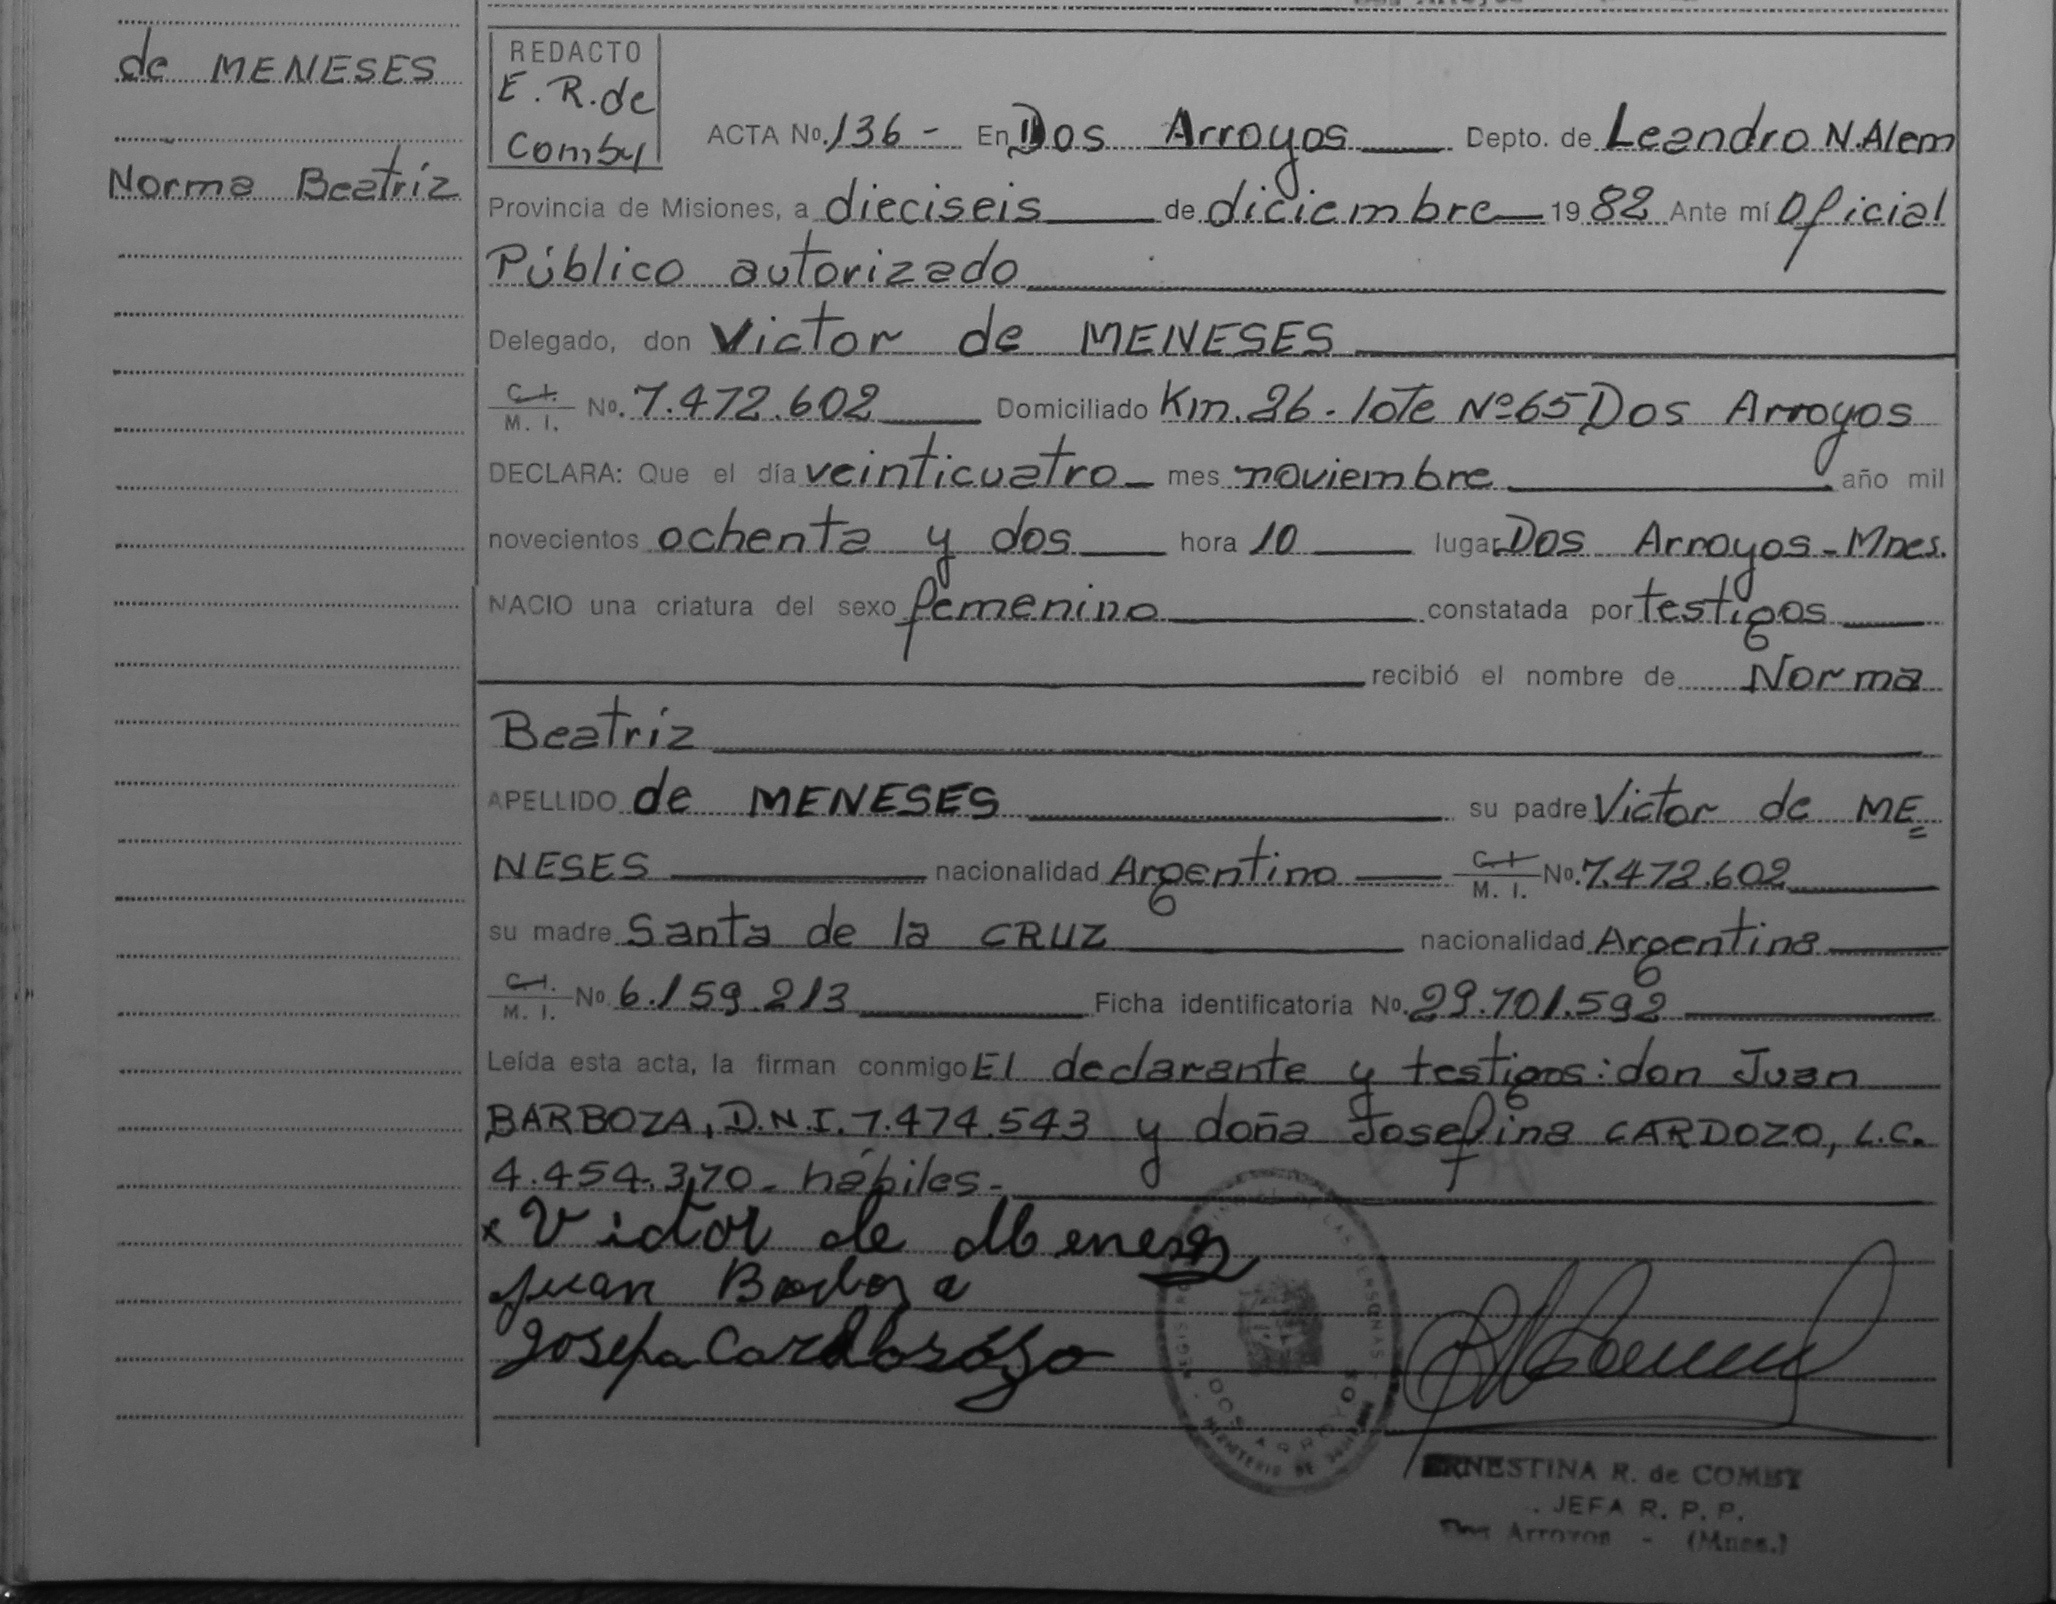 de MENESES
Norma Beatriz
REDACTO
E. R. de
Comby
ACTA No. 136 - En Dos Arroyos Depto. de Leandro N. Alem
Provincia de Misiones, a dieciseis de diciembre 19 82 Ante mí Oficial
Público autorizado
Delegado, don Victor de MENESES
C. I.
M. I. No. 7.472.602 Domiciliado Km. 26 - lote Nº 65 Dos Arroyos
DECLARA: Que el día veinticuatro mes noviembre año mil
novecientos ochenta y dos hora 10 lugar Dos Arroyos - Mnes.
NACIO una criatura del sexo femenino constatada por testigos
recibió el nombre de Norma
Beatriz
APELLIDO de MENESES su padre Victor de ME=
NESES nacionalidad Argentino C. I.
M. I. No. 7.472.602
su madre Santa de la CRUZ nacionalidad Argentina
C. I.
M. I. No. 6.159.213 Ficha identificatoria No. 29.701.592
Leída esta acta, la firman conmigo El declarante y testigos: don Juan
BARBOZA, D.N.I. 7.474.543 y doña Josefina CARDOZO, L.C.
4.454.370 - hábiles -
x Victor de Meneses
Juan Barboza
Josefa
DE LAS PERSONAS
DOS ARROYOS
MINISTERIO DE
ERNESTINA R. de COMBY
JEFA R. P. P.
Dos Arroyos - (Mnes.)